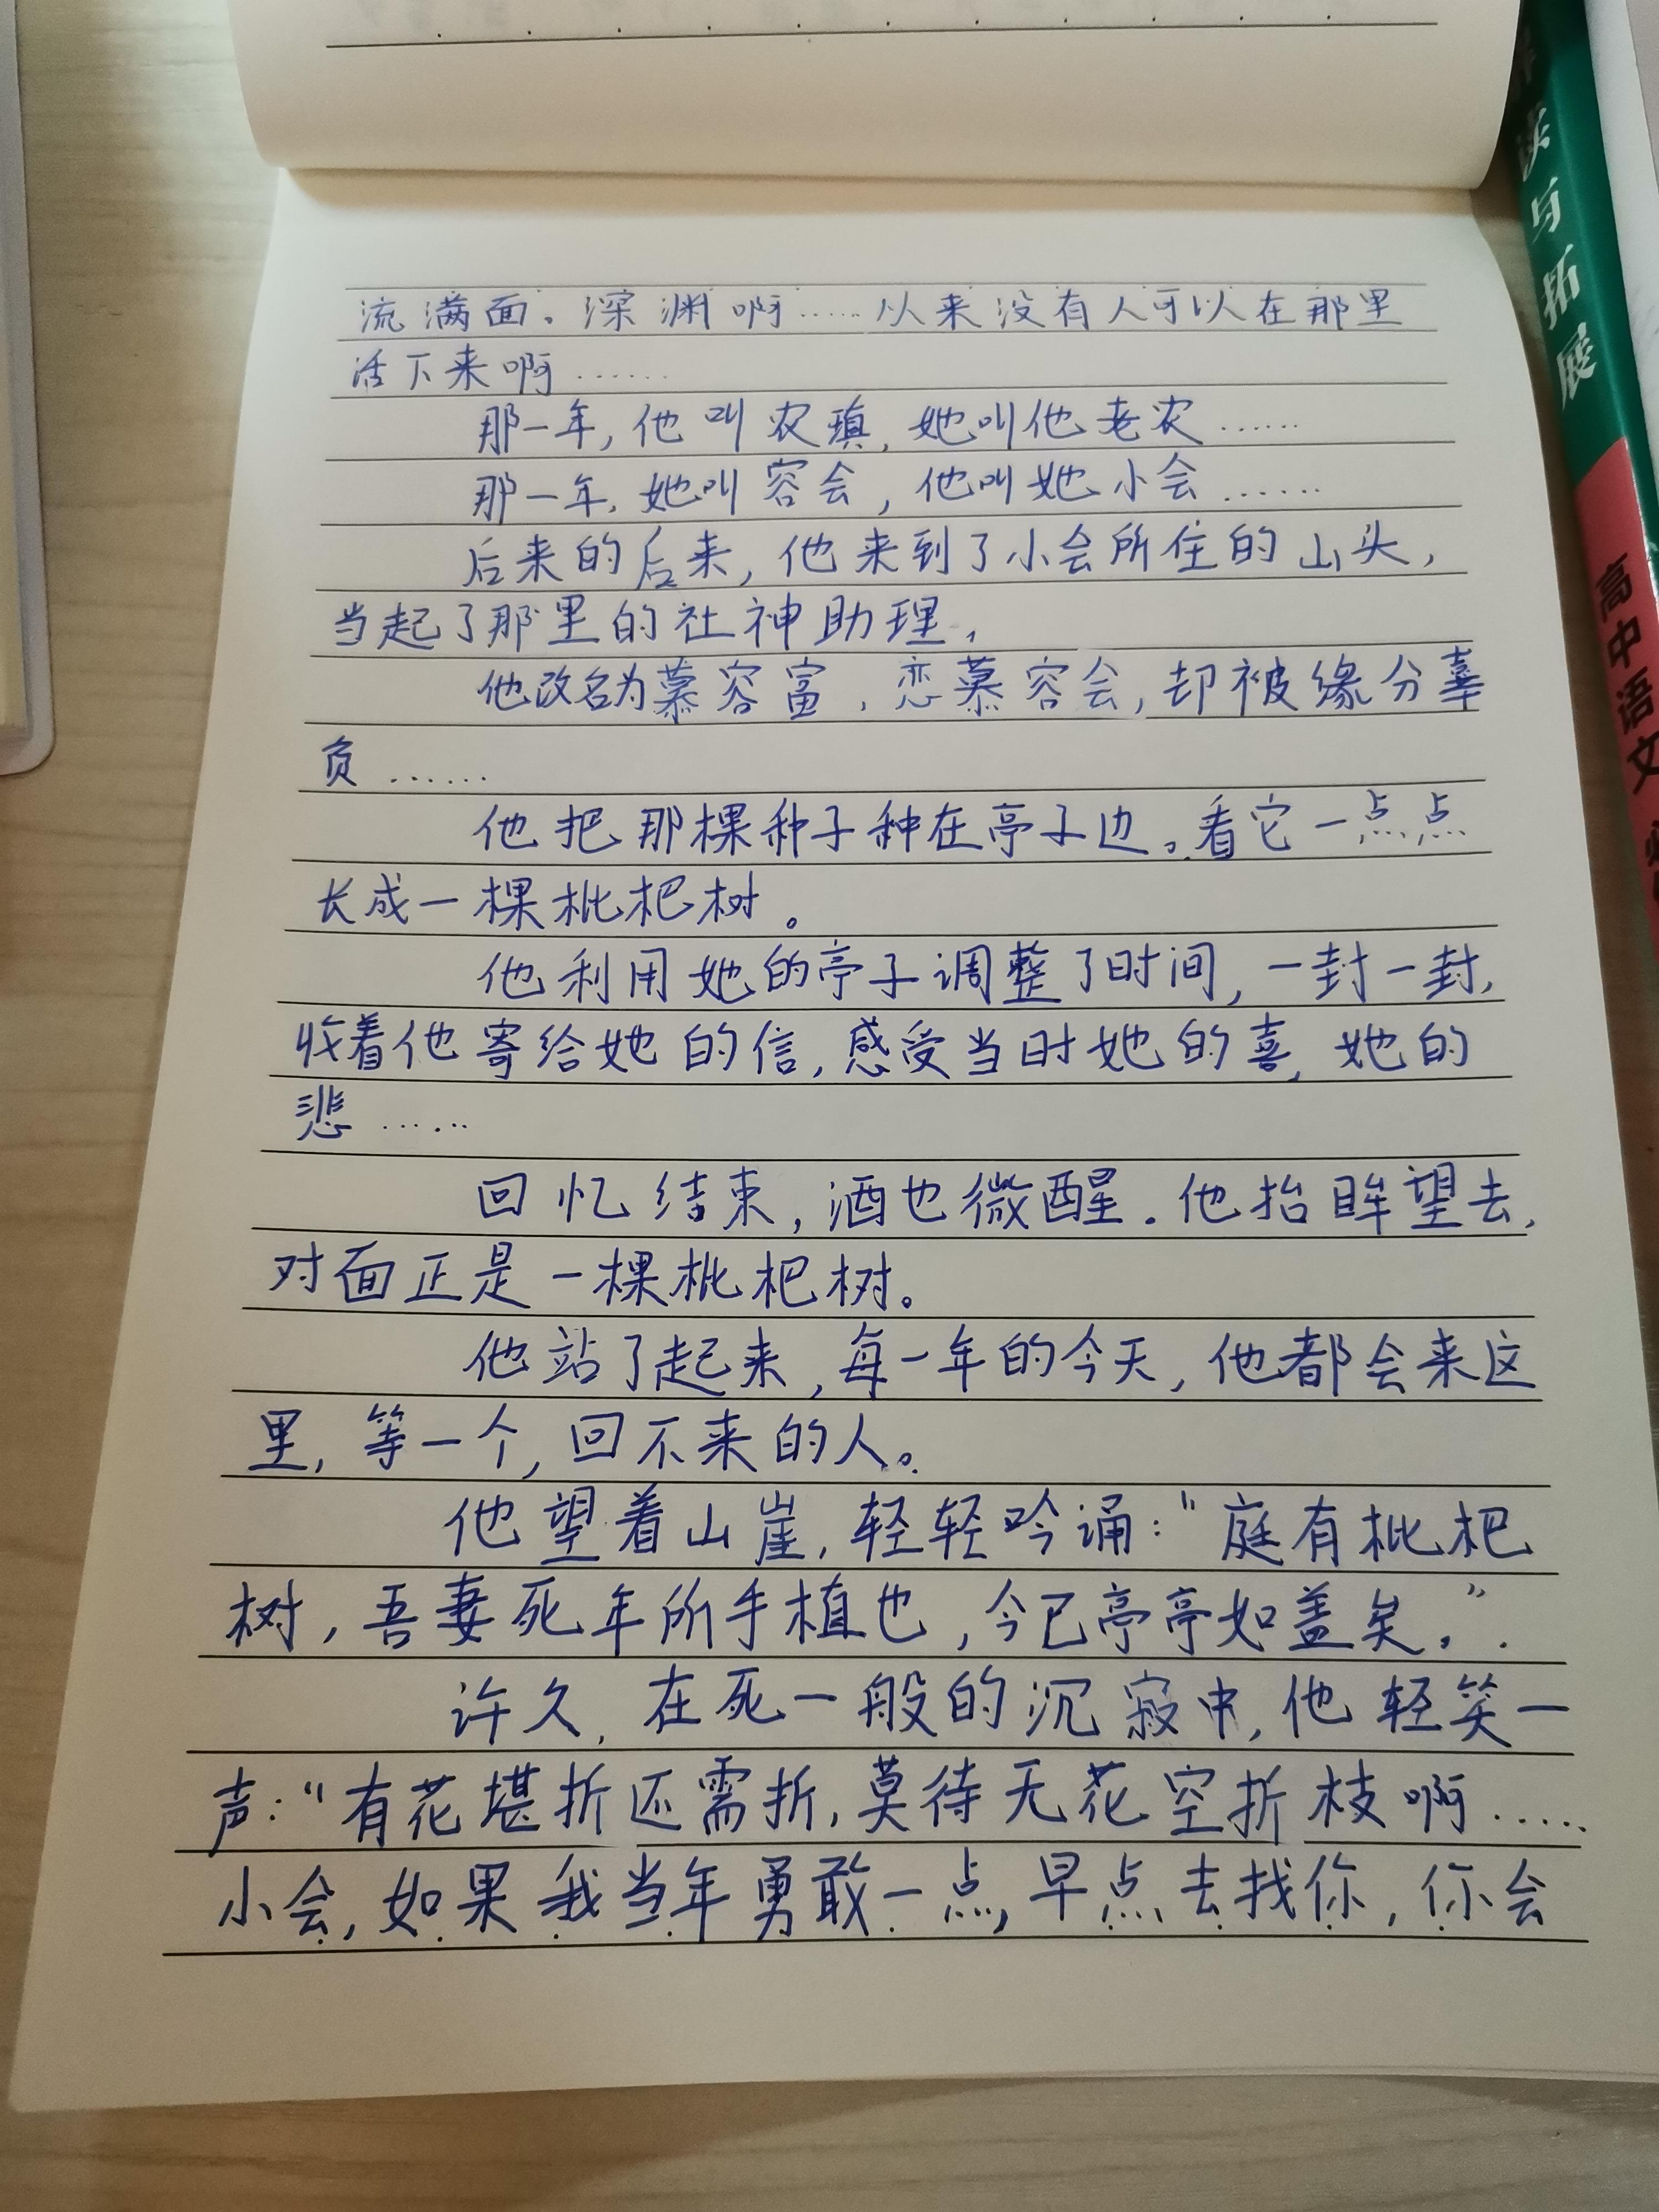 流满面。深渊啊……从来没有人可以在那里
活下来啊……
那一年,他叫农瑱,她叫他老农……
那一年,她叫容会,他叫她小会……
后来的后来,他来到了小会所住的山头,
当起了那里的社神助理。
他改名为慕容富,恋慕容会,却被缘分辜
负……
他把那棵种子种在亭子边。看它一点点
长成一棵枇杷树。
他利用她的亭子调整了时间,一封一封,
收着他寄给她的信,感受当时她的喜,她的
悲……
回忆结束,酒也微醒。他抬眸望去,
对面正是一棵枇杷树。
他站了起来,每一年的今天,他都会来这
里,等一个,回不来的人。
他望着山崖,轻轻吟诵:“庭有枇杷
树,吾妻死年所手植也,今已亭亭如盖矣。”
许久,在死一般的沉寂中,他轻笑一
声:“有花堪折还需折,莫待无花空折枝啊……
小会,如果我当年勇敢一点,早点去找你,你会
读与拓展
高中语文